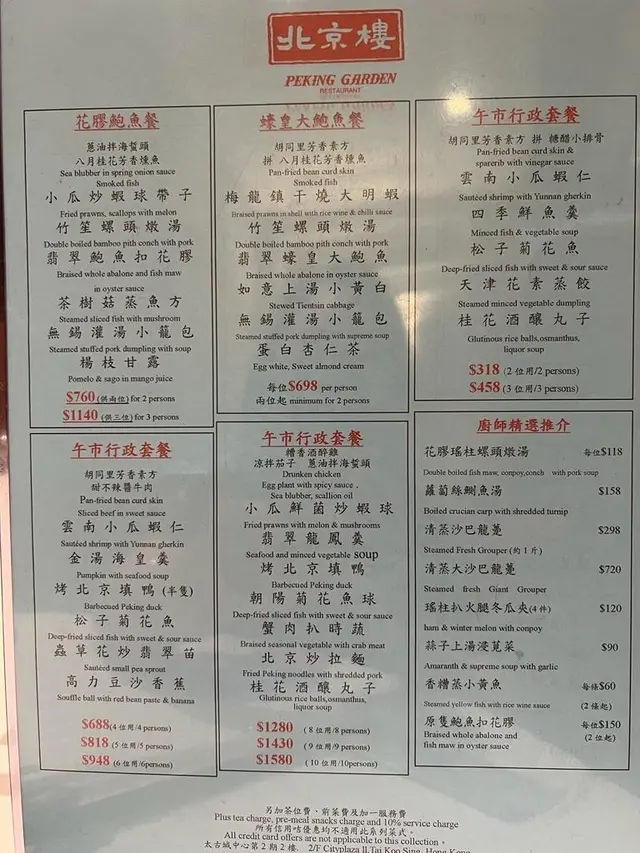 北京樓
PEKING GARDEN
RESTAURANT
花膠鮑魚餐
蔥油拌海蜇頭
八月桂花芳香燻魚
Sea blubber in spring onion sauce
Smoked fish
小瓜炒蝦球帶子
Fried prawns, scallops with melon
竹笙螺頭燉湯
Double boiled bamboo pith conch with pork
翡翠鮑魚扣花膠
Braised whole abalone and fish maw
in oyster sauce
茶樹菇蒸魚方
Steamed sliced fish with mushroom
無錫灌湯小籠包
Steamed stuffed pork dumpling with soup
楊枝甘露
Pomelo & sago in mango juice
$760 (供兩位) for 2 persons
$1140 (供三位) for 3 persons
蠔皇大鮑魚餐
胡同里芳香素方
拼 八月桂花芳香燻魚
Pan-fried bean curd skin
Smoked fish
梅龍鎮干燒大明蝦
Braised prawns in shell with rice wine & chilli sauce
竹笙螺頭燉湯
Double boiled bamboo pith conch with pork
翡翠蠔皇大鮑魚
Braised whole abalone in oyster sauce
如意上湯小黃白
Stewed Tientsin cabbage
無錫灌湯小籠包
Steamed stuffed pork dumpling with supreme soup
蛋白杏仁茶
Egg white, Sweet almond cream
每位$698 per person
兩位起 minimum for 2 persons
午市行政套餐
胡同里芳香素方 拼 糖醋小排骨
Pan-fried bean curd skin &
sparerib with vinegar sauce
雲南小瓜蝦仁
Sautéed shrimp with Yunnan gherkin
四季鮮魚羹
Minced fish & vegetable soup
松子菊花魚
Deep-fried sliced fish with sweet & sour sauce
天津花素蒸餃
Steamed minced vegetable dumpling
桂花酒釀丸子
Glutinous rice balls,osmanthus,
liquor soup
$318 (2 位用/2 persons)
$458 (3 位用/3 persons)
午市行政套餐
胡同里芳香素方
甜不辣醬牛肉
Pan-fried bean curd skin
Sliced beef in sweet sauce
雲南小瓜蝦仁
Sautéed shrimp with Yunnan gherkin
金湯海皇羹
Pumpkin with seafood soup
烤北京填鴨(半隻)
Barbecued Peking duck
松子菊花魚
Deep-fried sliced fish with sweet & sour sauce
蟲草花炒翡翠苗
Sautéed small pea sprout
高力豆沙香蕉
Souffle ball with red bean paste & banana
$688(4 位用/4 persons)
$818 (5 位用/5 persons)
$948 (6 位用/6persons)
午市行政套餐
糟香酒醉雞
凉拌茄子 蔥油拌海蜇頭
Drunken chicken
Egg plant with spicy sauce ,
Sea blubber, scallion oil
小瓜鮮菌炒蝦球
Fried prawns with melon & mushrooms
翡翠龍鳳羹
Seafood and minced vegetable soup
烤北京填鴨
Barbecued Peking duck
朝陽菊花魚球
Deep-fried sliced fish with sweet & sour sauce
蟹肉扒時蔬
Braised seasonal vegetable with crab meat
北京炒拉麵
Fried Peking noodles with shredded pork
桂花酒釀丸子
Glutinous rice balls,osmanthus,
liquor soup
$1280 (8 位用/8 persons)
$1430 (9 位用/9 persons)
$1580 (10 位用/10persons)
廚師精選推介
花膠瑤柱螺頭燉湯 每位$118
Double boiled fish maw, conpoy,conch with pork soup
蘿蔔絲鯽魚湯 $158
Boiled crucian carp with shredded turnip
清蒸沙巴龍躉 $298
Steamed Fresh Grouper (約 1 斤)
清蒸大沙巴龍躉 $720
Steamed fresh Giant Grouper
瑤柱扒火腿冬瓜夾(4 件) $120
ham & winter melon with conpoy
蒜子上湯浸莧菜 $90
Amaranth & supreme soup with garlic
香糟蒸小黃魚 每條$60
Steamed yellow fish with rice wine sauce (2 條起)
原隻鮑魚扣花膠 每位$150
Braised whole abalone and (2 位起)
fish maw in oyster sauce
另加茶位費、前菜費及加一服務費
Plus tea charge, pre-meal snacks charge and 10% service charge
所有信用咭優惠均不適用此系列菜式。
All credit card offers are not applicable to this collection。
太古城中心第 2 期 2 樓. 2/F Cityplaza II,Tai Koo Sing, Hong Kong